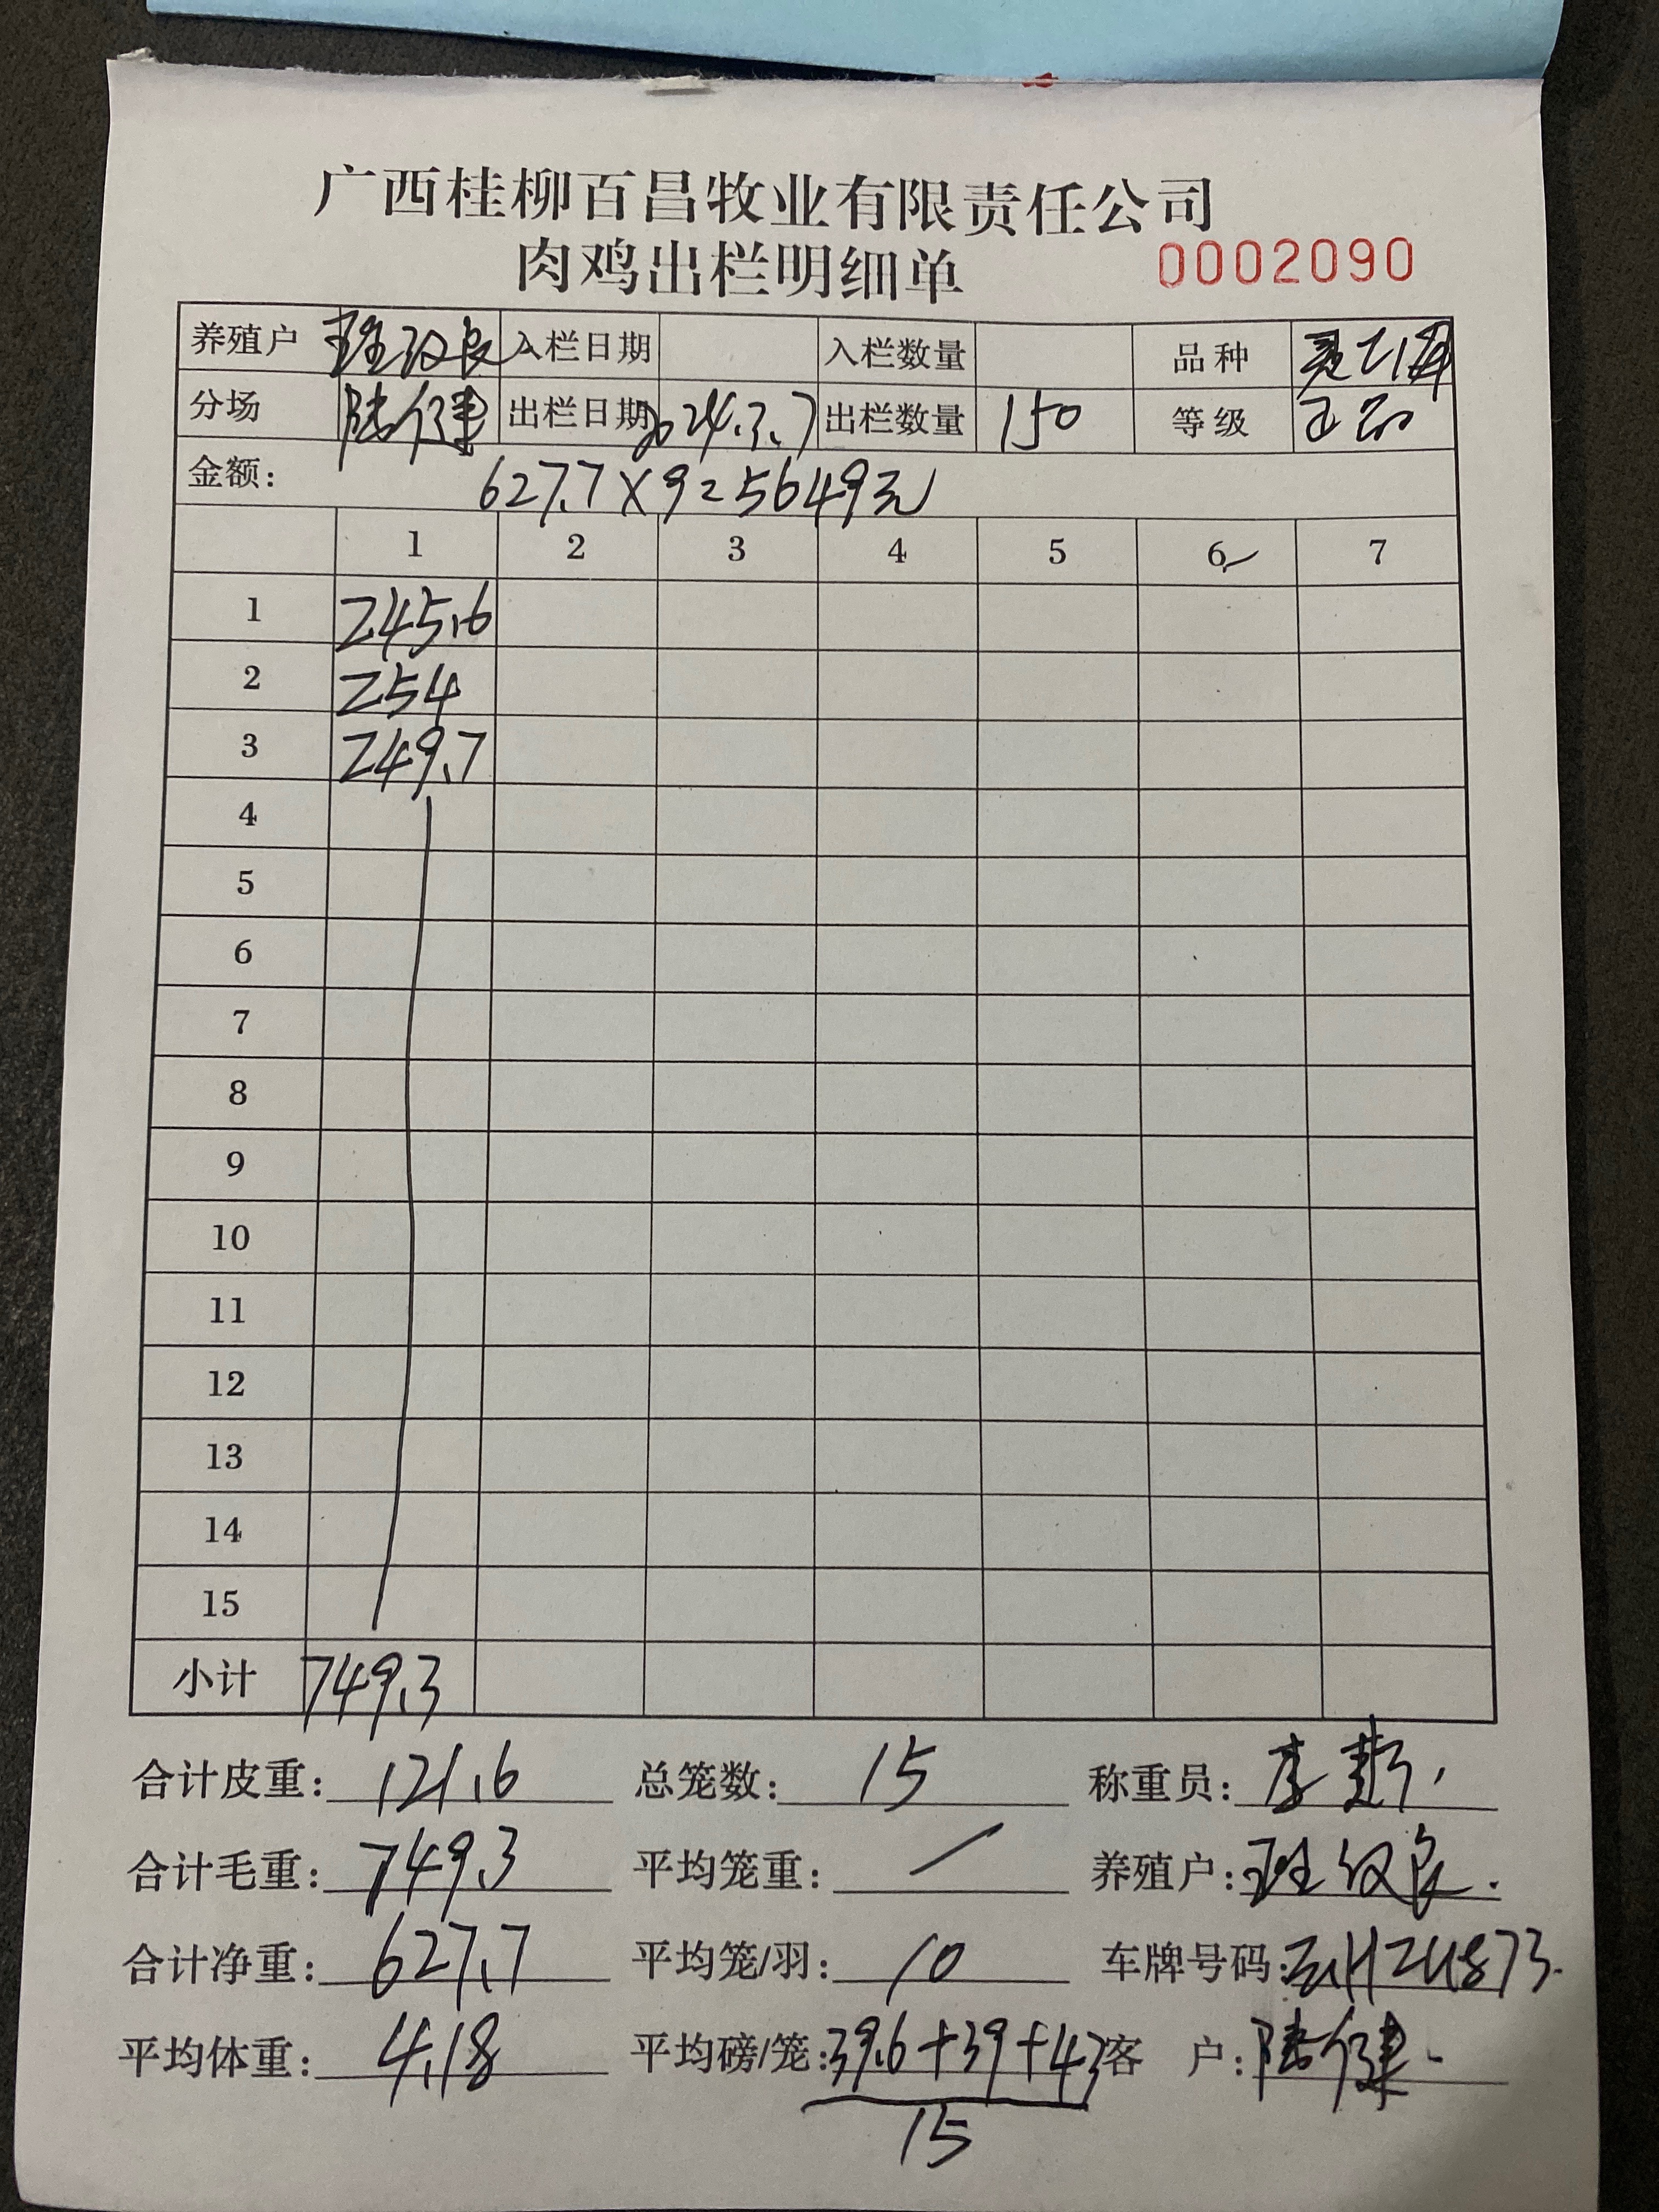 广西桂柳百昌牧业有限责任公司
肉鸡出栏明细单 0002090
养殖户 入栏日期 入栏数量 品种
分场 陆健 出栏日期 2024.3.7 出栏数量 150 等级 正品
金额: 627.7×9=5649元
1 2 3 4 5 6 7
1 245.6
2 254
3 249.7
4
5
6
7
8
9
10
11
12
13
14
15
小计 749.3
合计皮重: 121.6 总笼数: 15 称重员:
合计毛重: 749.3 平均笼重: / 养殖户:
合计净重: 627.7 平均笼/羽: 10 车牌号码:
平均体重: 4.18 平均磅/笼: 39.6+39+43 客 户: 陆健
15